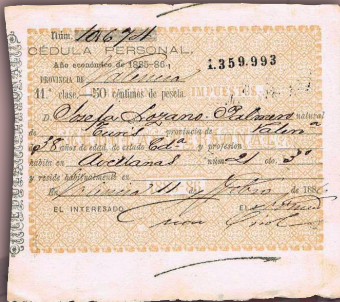 Núm. 106704
CÉDULA PERSONAL,
Año económico de 1885-86
1.359.993
PROVINCIA DE Valencia
11.ª clase.—50 céntimos de peseta.
D. Josefa Lozano Palmero natural
de Cunis provincia de Valen.ª
de 38 años de edad, de estado Cda y profesion
habita en Avellanas núm. 21 cto. 3º
y reside habitualmente en
Valencia 11 Febro de 188
EL INTERESADO, EL